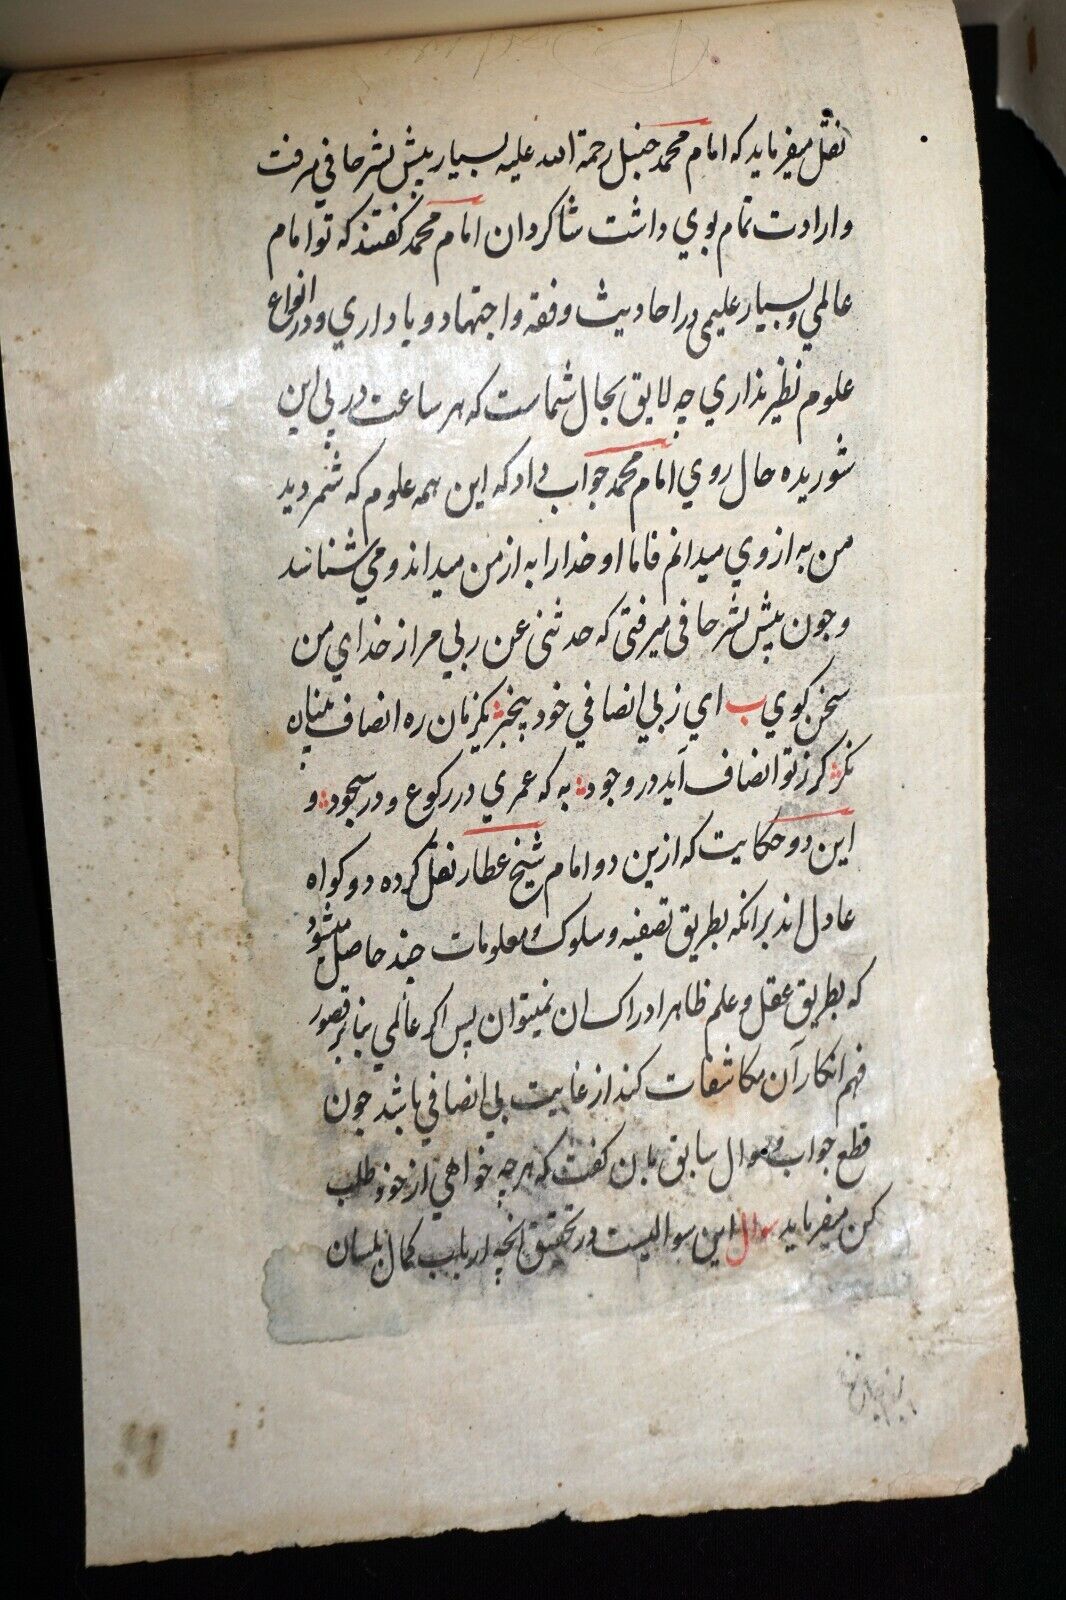 نقل میفرماید که امام محمد حنبل رحمة الله علیه بسیار پیش بشر حافي میرفت
و ارادت تمام بوي داشت شاکردان امام محمد کفتند که تو امام
عالمي و بسیار علیمی در احادیث و فقه و اجتهاد و یاد داري و در انواع
علوم نظیر نداري چه لایق بحال شماست که هر ساعت در پي این
شوریده حال روي امام محمد جواب داد که این همه علوم که شمردید
من به از وي میدانم فاما او خدا را به از من میداند و مي شناسد
و جون پیش بشر حافی میرفتی که حدثنی عن ربي مرا از خداي من
سخن کوي ب اي زبي انصافي خود بیخبر یکزمان ره انصاف
نکر کر ز تو انصاف آید در وجود به که عمري در رکوع و در سجود و
این دو حکایت که ازین دو امام شیخ عطار نقل کرده دو کواه
عادل اند برانکه بطریق تصفیه و سلوک و معلومات چند حاصل میشود
که بطریق عقل و علم ظاهر ادراک ان نمیتوان پس اکر عالمي بنا بر قصور
فهم انکار آن مکاشفات کند از غایت بي انصافي باشد جون
قطع جواب و سوال سابق بان کفت که هر چه خواهي از خود طلب
کن میفرماید سوال این سوالیست در تحقیق انچه ارباب کمال بلسان